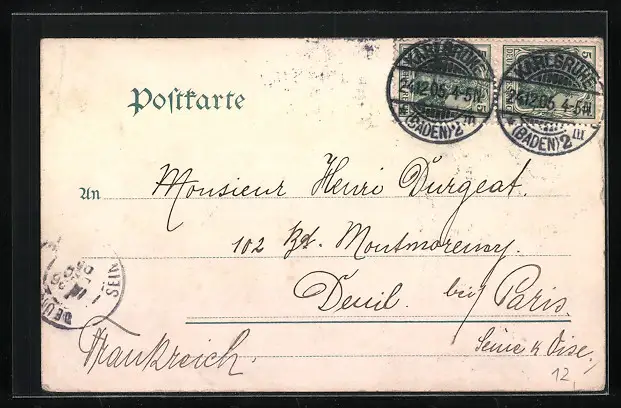 5 5
KARLSRUHE KARLSRUHE
24.12.05. 4-5N. 24.12.05. 4-5N.
* (BADEN) 2 m * (BADEN) 2 m
Postkarte
An Monsieur Henri Durgeat.
102 Bd. Montmorency.
Deuil. bei Paris.
Frankreich.
Seine & Oise.
12
DEUIL
SEIN